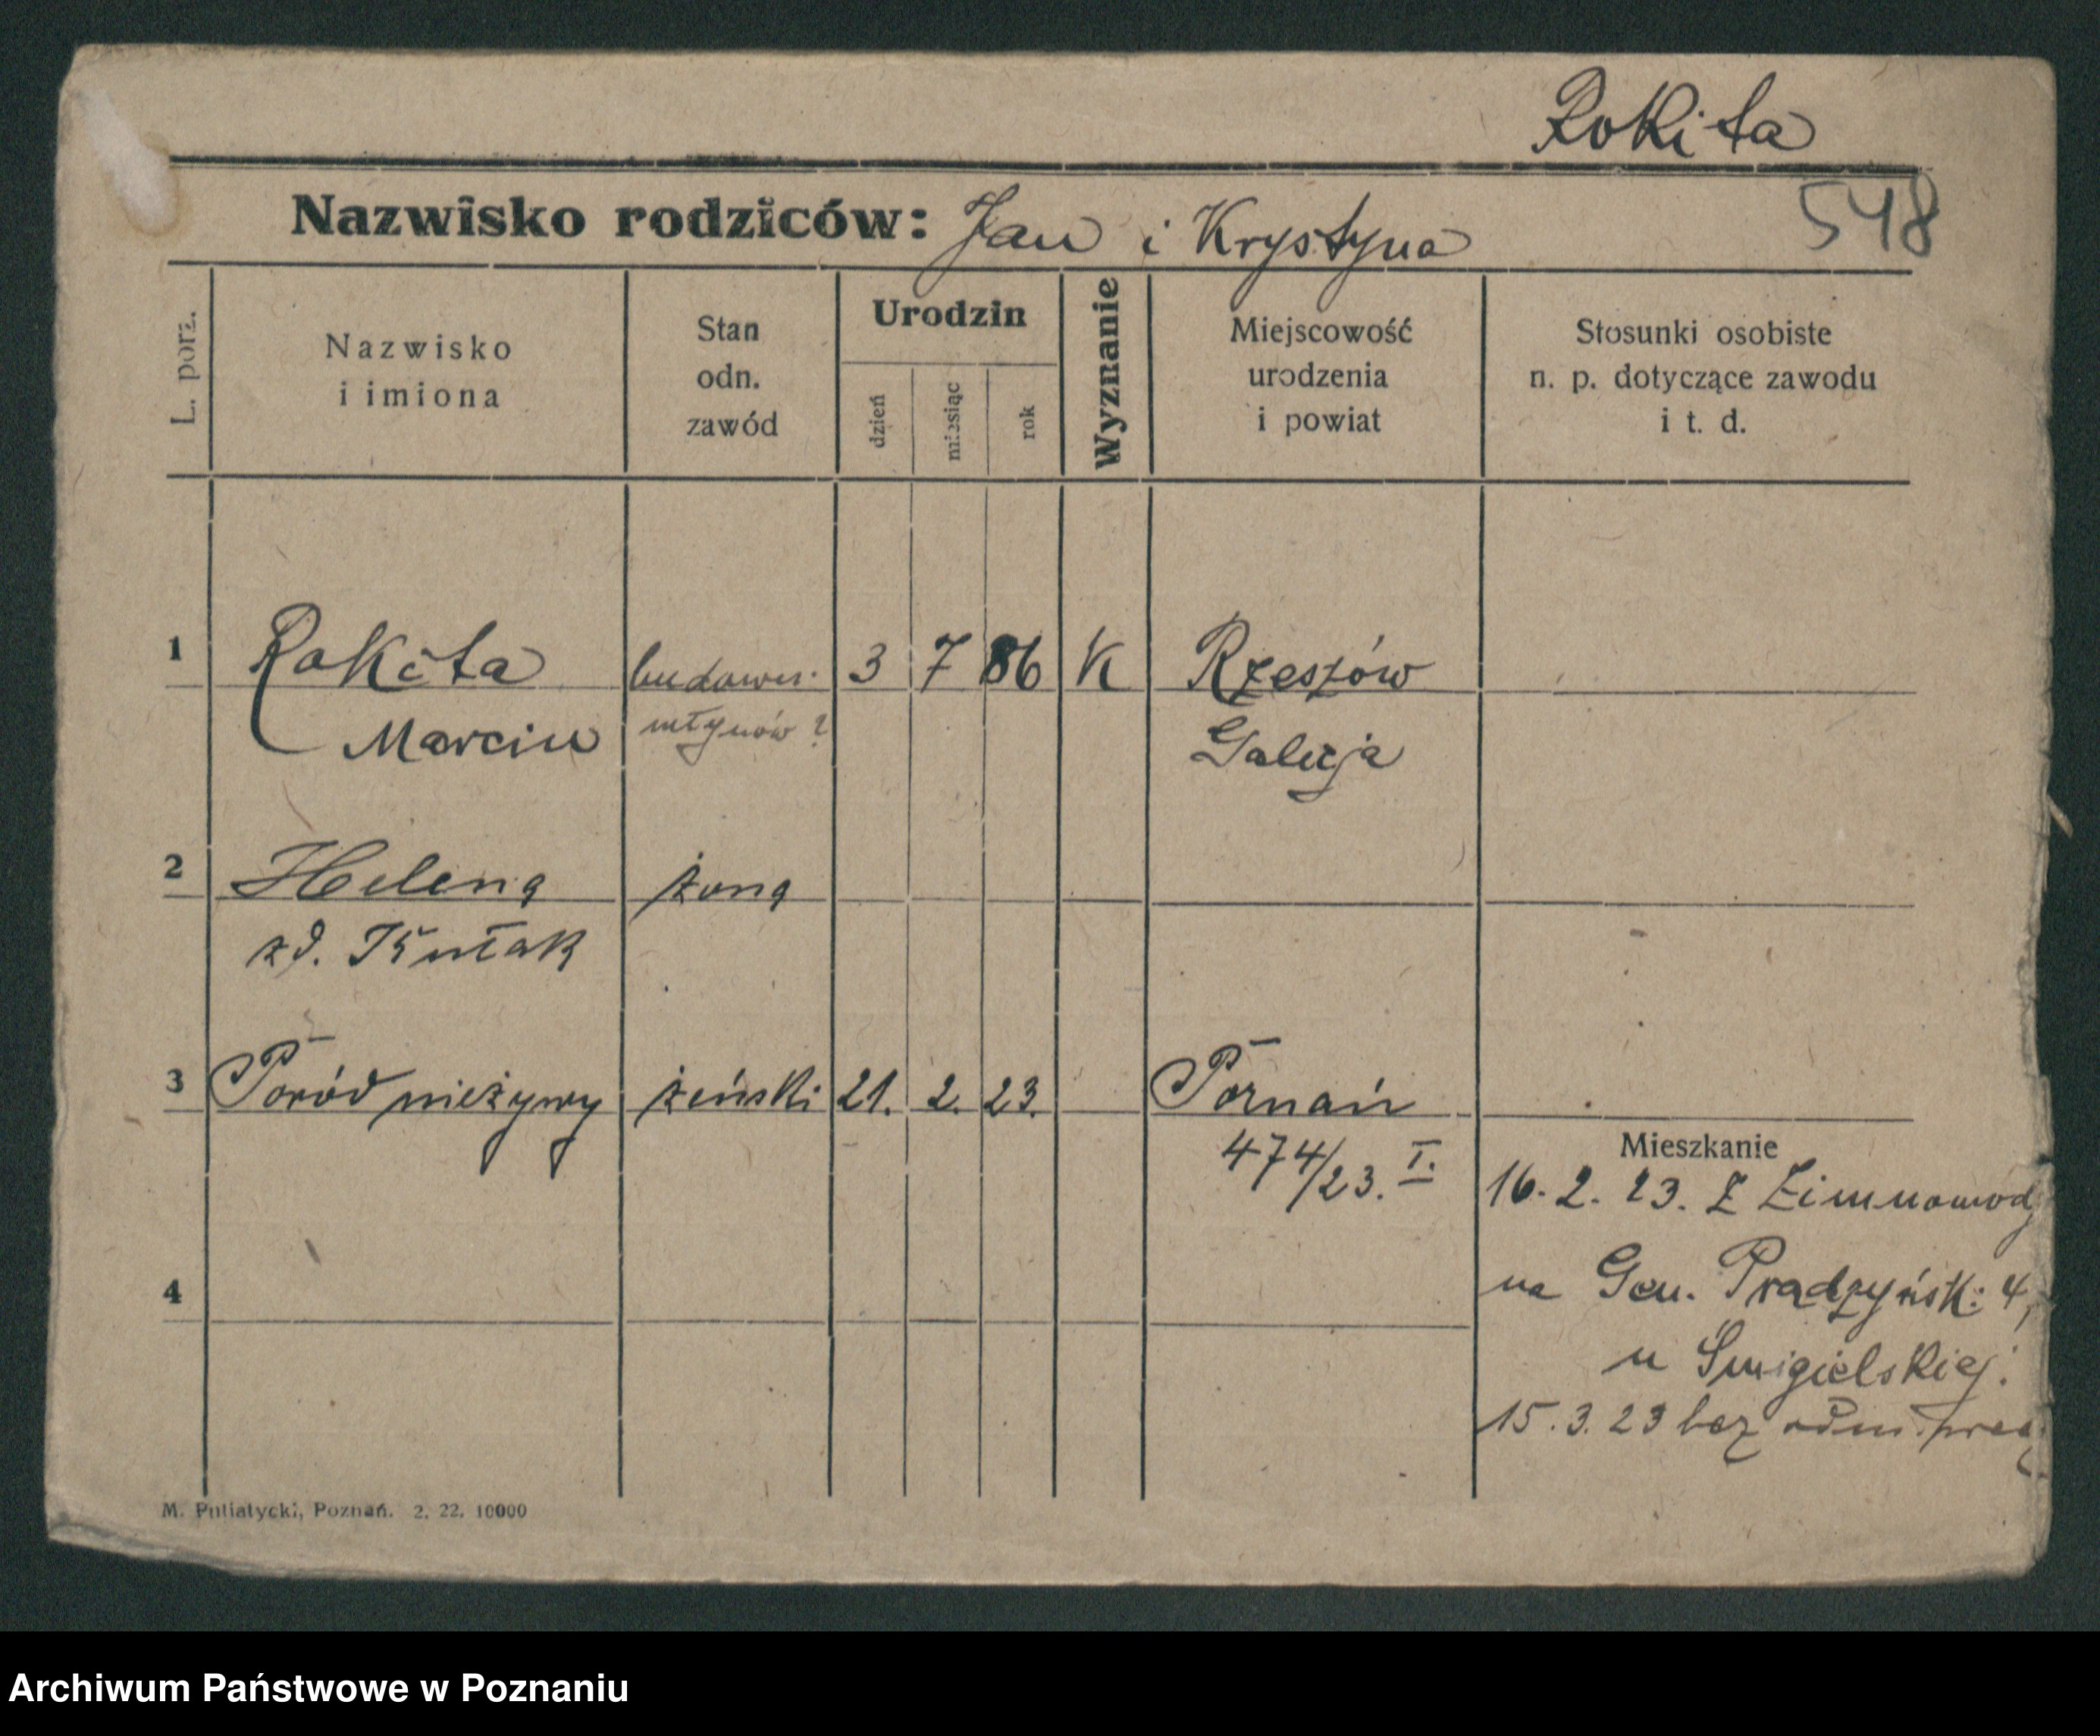 Rokita
548
Nazwisko rodziców: Jan i Krystyna
L. porz.
Nazwisko
i imiona
Stan
odn.
zawód
Urodzin
dzień
miesiąc
rok
Wyznanie
Miejscowość
urodzenia
i powiat
Stosunki osobiste
n. p. dotyczące zawodu
i t. d.
1 Rokita budown. 3 7 86 K Rzeszów
Marcin młynów ? Galicja
2 Helena żona
zd. Kułak
3 Poród nieżywy żeński 21. 2. 23. Poznań
474/23. I.
Mieszkanie
16. 2. 23. Z Zimnowody
na Gen. Prądzyńsk: 4,
u Śmigielskiej.
15.3.23 bez odm.
4
M. Putiatycki, Poznań. 2. 22. 10000
Archiwum Państwowe w Poznaniu